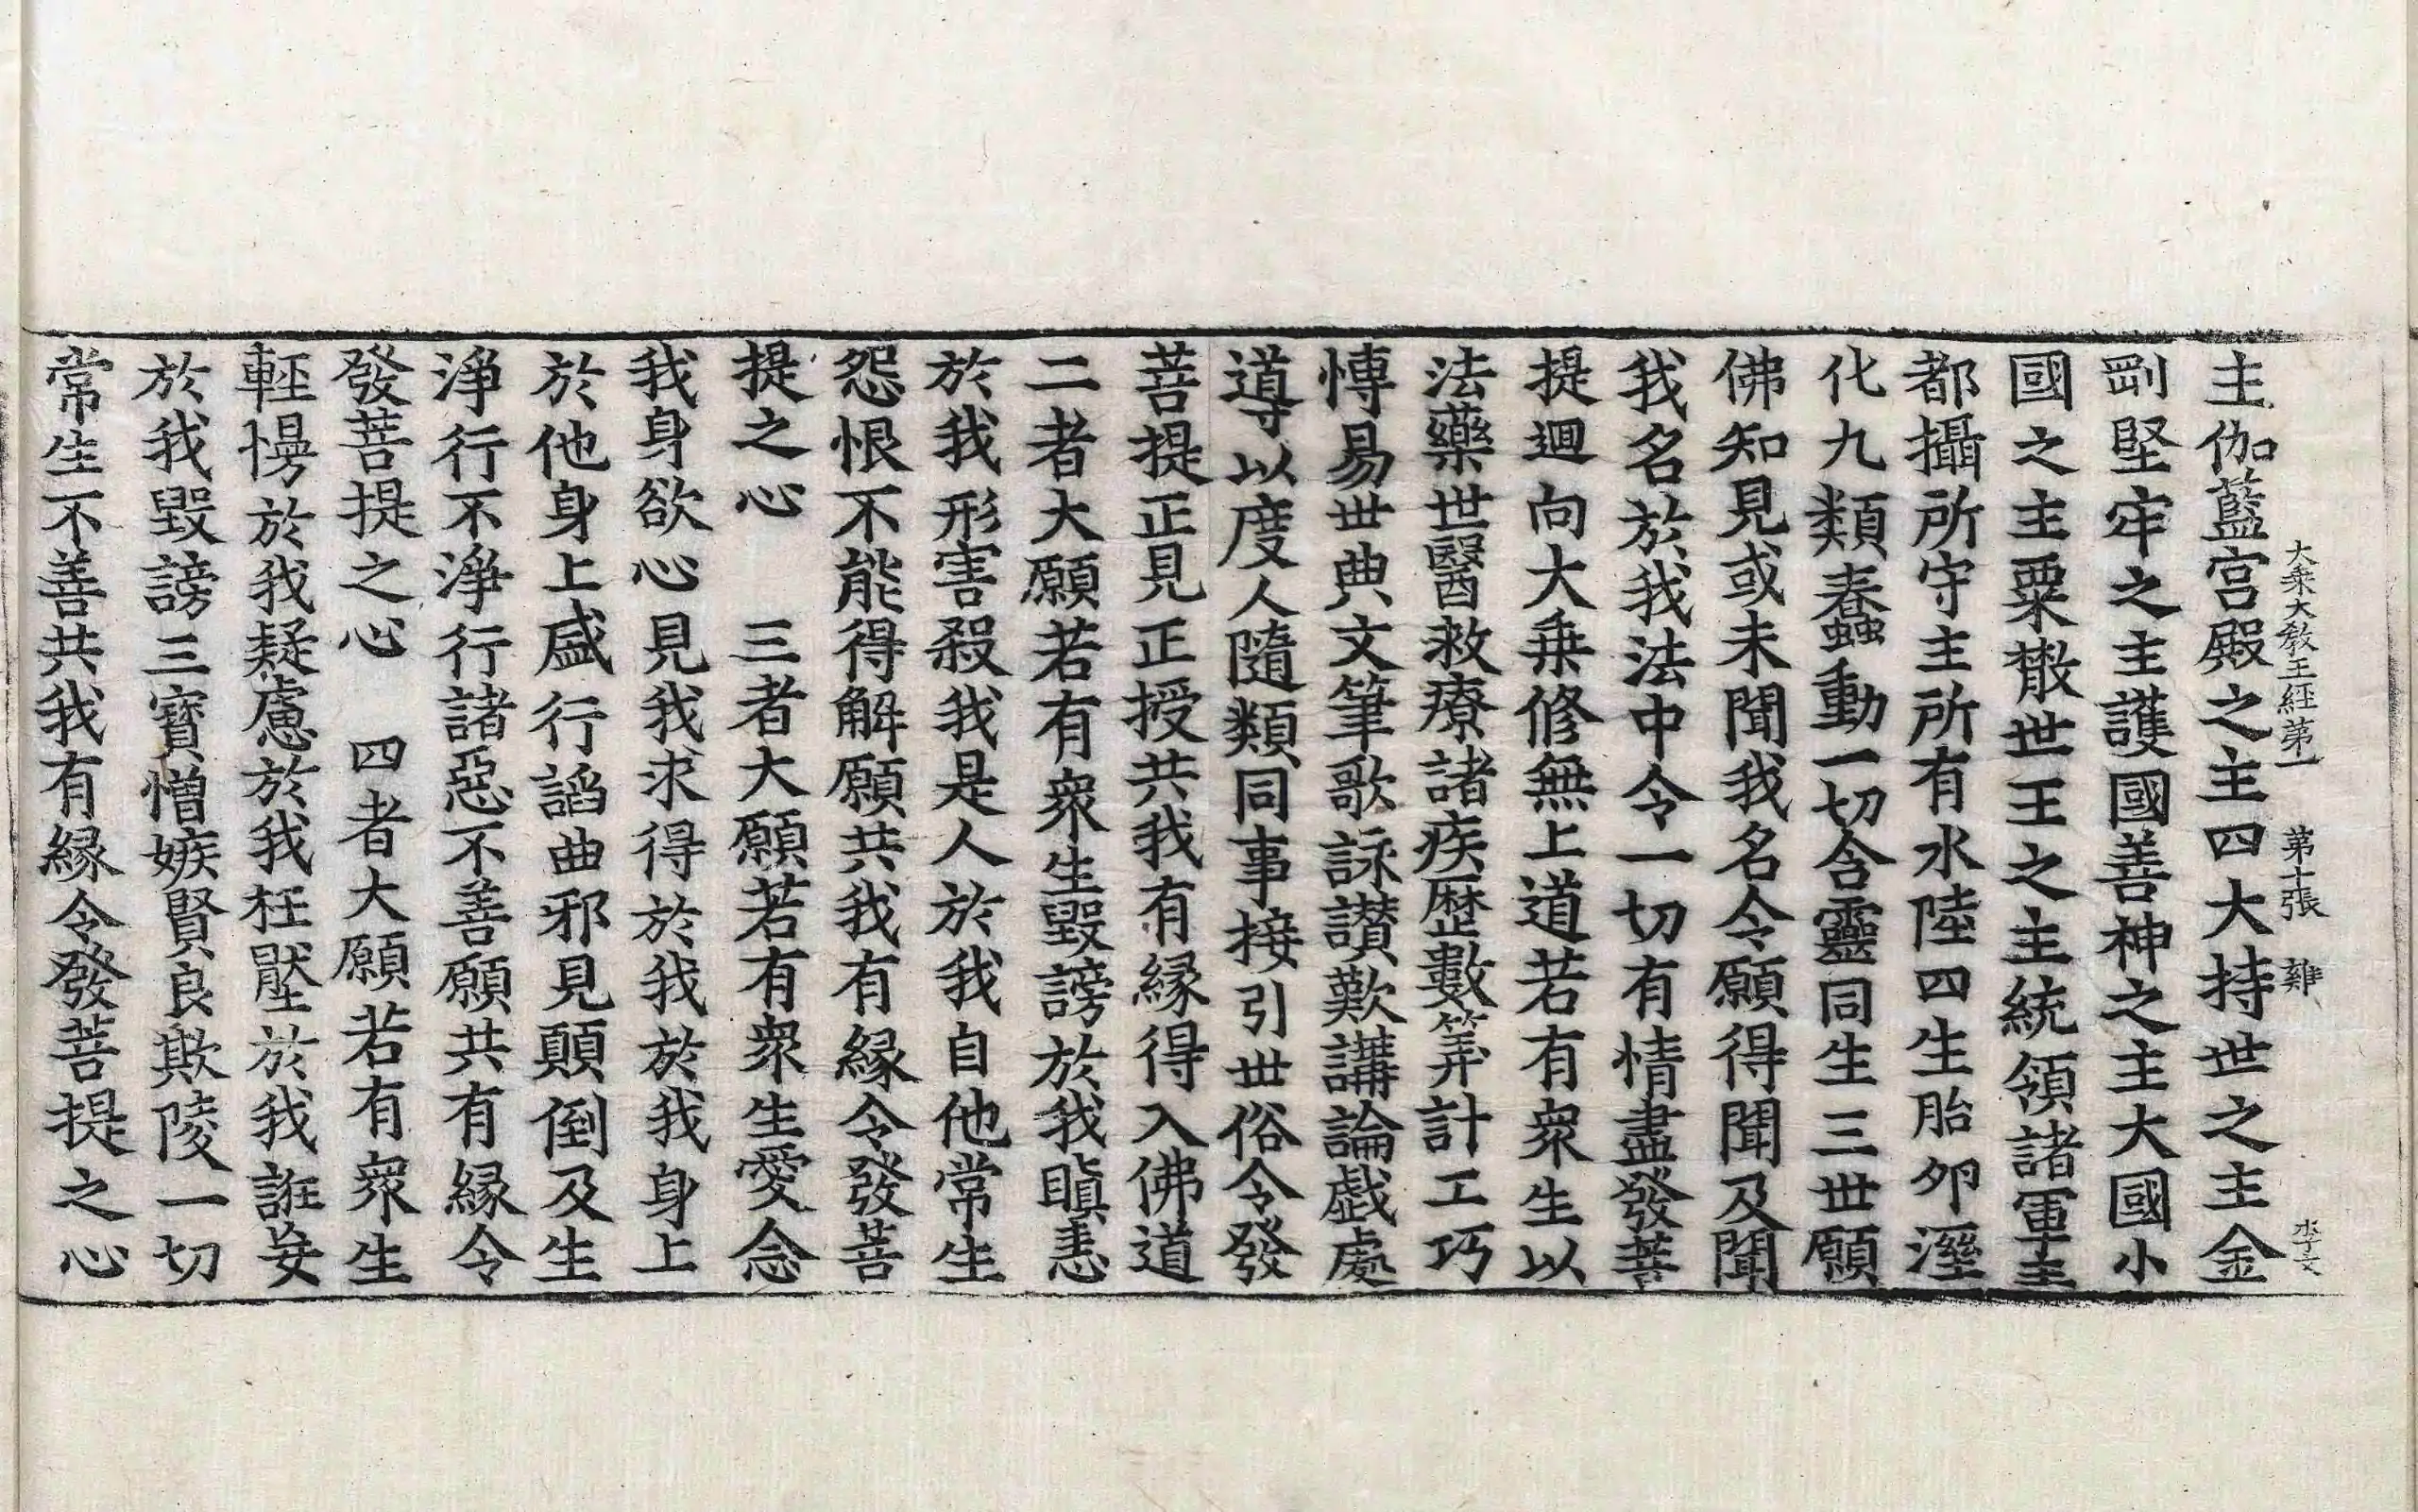 大乘大敎王經第一 第十張 雞
主伽藍宮殿之主四大持世之主金
剛堅牢之主護國善神之主大國小
國之主粟散世王之主統領諸軍主
都攝所守主所有水陸四生胎卵溼
化九類蠢動一切含靈同生三世願
佛知見或未聞我名令願得聞及聞
我名於我法中令一切有情盡發菩
提迴向大乘修無上道若有衆生以
法藥世醫救療諸疾歷數筭計工巧
愽易世典文筆歌詠讃歎講論戲處
導以度人隨類同事接引世俗令發
菩提正見正授共我有緣得入佛道
二者大願若有衆生毀謗於我瞋恚
於我形害殺我是人於我自他常生
怨恨不能得解願共我有緣令發菩
提之心 三者大願若有衆生愛念
我身欲心見我求得於我於我身上
於他身上盛行諂曲邪見顛倒及生
淨行不淨行諸惡不善願共有緣令
發菩提之心 四者大願若有衆生
輕慢於我疑慮於我枉壓於我誑妄
於我毀謗三寶憎嫉賢良欺陵一切
常生不善共我有緣令發菩提之心